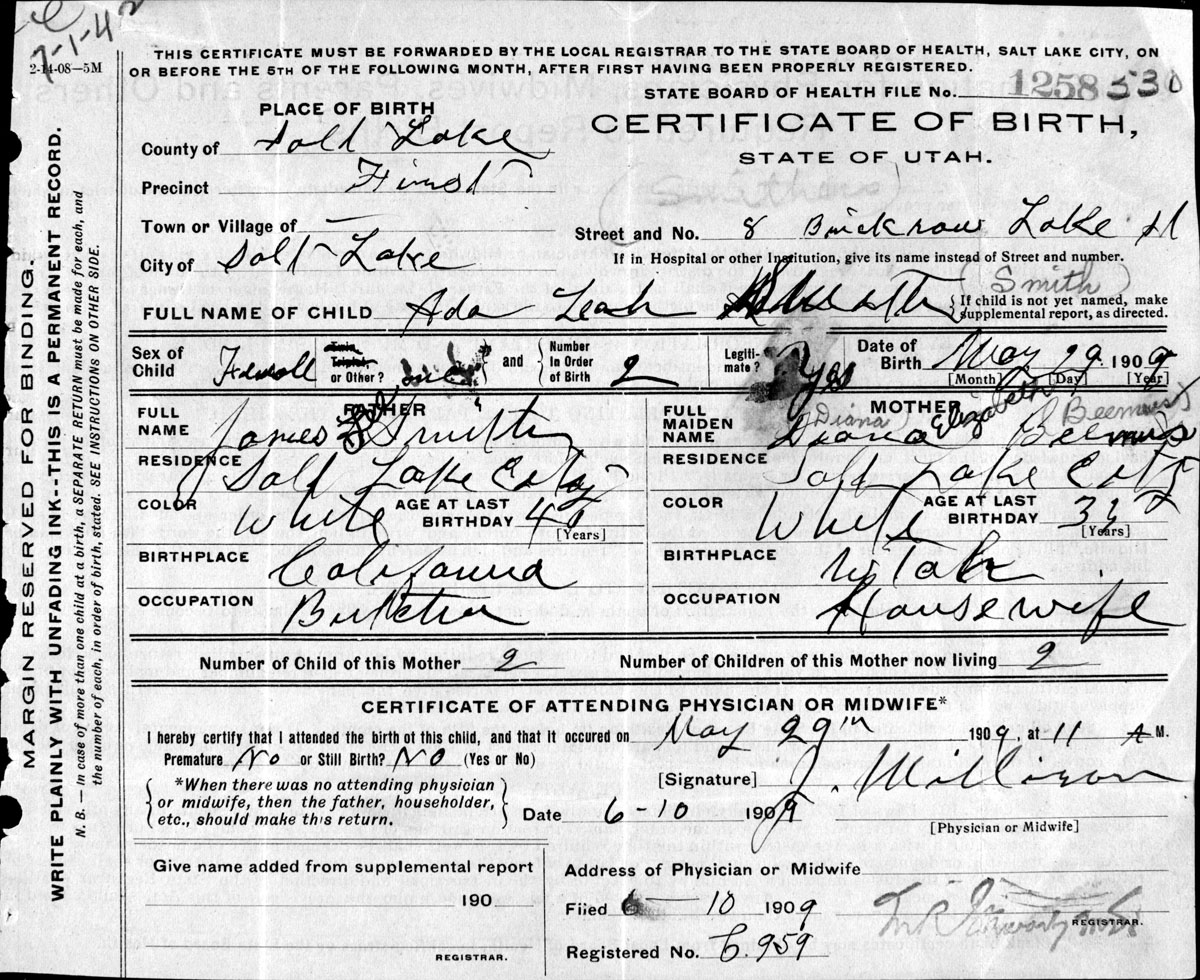 7-1-42
2-14-08—5M
THIS CERTIFICATE MUST BE FORWARDED BY THE LOCAL REGISTRAR TO THE STATE BOARD OF HEALTH, SALT LAKE CITY, ON
OR BEFORE THE 5TH OF THE FOLLOWING MONTH, AFTER FIRST HAVING BEEN PROPERLY REGISTERED.
STATE BOARD OF HEALTH FILE No. 1258 530
PLACE OF BIRTH
CERTIFICATE OF BIRTH,
STATE OF UTAH.
County of Salt Lake
Precinct First
Town or Village of —
Street and No. 8 Brickrow Lake st
City of Salt Lake
If in Hospital or other Institution, give its name instead of Street and number.
(Smith)
FULL NAME OF CHILD Ada Leah
If child is not yet named, make
supplemental report, as directed.
Sex of Child Female
Twin, Triplet, or Other?
and
Number in Order of Birth 2
Legiti-mate? Yes
Date of Birth May 29. 1909
[Month] [Day] [Year]
FATHER
FULL NAME James Smith
RESIDENCE Salt Lake City
COLOR White
AGE AT LAST BIRTHDAY
[Years]
BIRTHPLACE California
OCCUPATION Butcher
MOTHER
(Diana) Beemus
FULL MAIDEN NAME Diana Elizabeth Beemus
RESIDENCE Salt Lake City
COLOR White
AGE AT LAST BIRTHDAY
[Years]
BIRTHPLACE Utah
OCCUPATION Housewife
Number of Child of this Mother 2
Number of Children of this Mother now living 2
CERTIFICATE OF ATTENDING PHYSICIAN OR MIDWIFE*
I hereby certify that I attended the birth of this child, and that it occured on May 29th 1909, at 11 A M.
Premature No or Still Birth? No (Yes or No)
[Signature] J. Millison
*When there was no attending physician
or midwife, then the father, householder,
etc., should make this return.
Date 6-10 1909
[Physician or Midwife]
Give name added from supplemental report
190
REGISTRAR.
Address of Physician or Midwife
Filed 6 — 10 1909
REGISTRAR.
Registered No. 6.959
MARGIN RESERVED FOR BINDING.
WRITE PLAINLY WITH UNFADING INK--THIS IS A PERMANENT RECORD.
N. B.— In case of more than one child at a birth, a SEPARATE RETURN must be made for each, and
the number of each, in order of birth, stated. SEE INSTRUCTIONS ON OTHER SIDE.